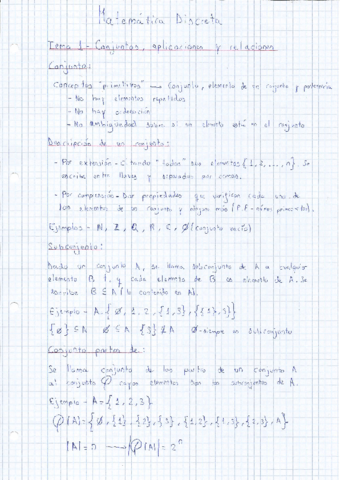 Matemática Discreta
Tema 1 = Conjuntos, aplicaciones y relaciones
Conjunto:
Conceptos "primitivos" → Conjunto, elemento de un conjunto y pertenencia
- No hay elementos repetidos
- No hay ordenación
- No ambigüedad sobre si un objeto está en el conjunto
Descripción de un conjunto:
- Por extensión - Citando "todos" sus elementos {1, 2, ..., n}. Se
escribe entre llaves y separados por comas.
- Por comprensión - Dar propiedades que verifican cada uno de
los elementos de un conjunto y ningún más
Ejemplos - N, Z, Q, R, C, ∅ (conjunto vacío)
Subconjunto:
Dado un conjunto A, se llama subconjunto de A a cualquier
elemento B, y cada elemento de B es elemento de A. Se
escribe B ⊆ A (B contenido en A).
Ejemplo - A = {∅, 1, 2, {1, 3}, {{1}, 3}}
{∅} ⊆ A ∅ ⊆ A {3} ⊈ A ∅ - siempre es subconjunto
Conjunto partes de:
Se llama conjunto de las partes de un conjunto A
al conjunto P cuyos elementos son los subconjuntos de A.
Ejemplo - A = {1, 2, 3}
P(A) = {∅, {1}, {2}, {3}, {1, 2}, {1, 3}, {2, 3}, A}
|A| = n → |P(A)| = 2ⁿ